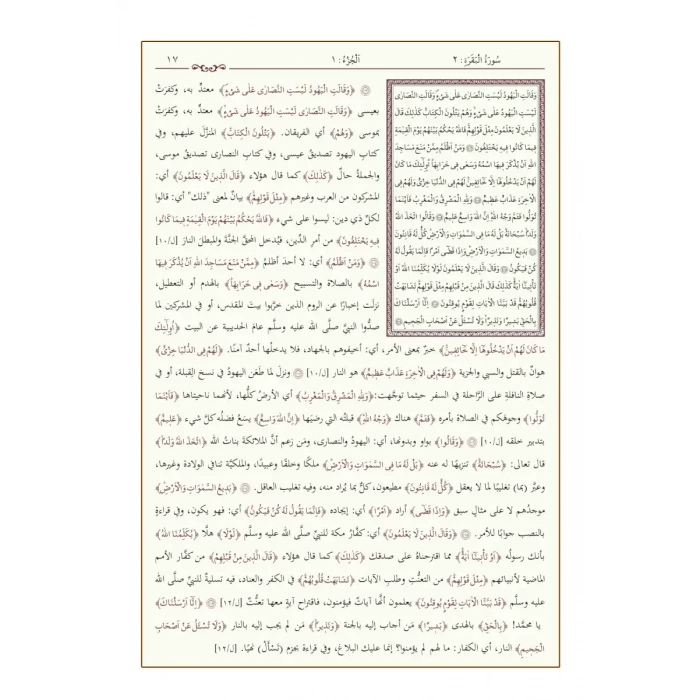 سُورَةُ الْبَقَرَةِ: ٢
اَلْجُزْءُ: ١
١٧
وَقَالَتِ الْيَهُودُ لَيْسَتِ النَّصَارٰى عَلٰى شَىْءٍ وَقَالَتِ النَّصَارٰى
لَيْسَتِ الْيَهُودُ عَلٰى شَىْءٍ وَهُمْ يَتْلُونَ الْكِتَابَ كَذٰلِكَ قَالَ
الَّذِينَ لَا يَعْلَمُونَ مِثْلَ قَوْلِهِمْ فَاللّٰهُ يَحْكُمُ بَيْنَهُمْ يَوْمَ الْقِيٰمَةِ
فِيمَا كَانُوا فِيهِ يَخْتَلِفُونَ وَمَنْ اَظْلَمُ مِمَّنْ مَنَعَ مَسَاجِدَ
اللّٰهِ اَنْ يُذْكَرَ فِيهَا اسْمُهُ وَسَعٰى فِى خَرَابِهَا اُولٰٓئِكَ مَا كَانَ
لَهُمْ اَنْ يَدْخُلُوهَا اِلَّا خَائِفِينَ لَهُمْ فِى الدُّنْيَا خِزْىٌ وَلَهُمْ فِى
الْاٰخِرَةِ عَذَابٌ عَظِيمٌ وَلِلّٰهِ الْمَشْرِقُ وَالْمَغْرِبُ فَاَيْنَمَا
تُوَلُّوا فَثَمَّ وَجْهُ اللّٰهِ اِنَّ اللّٰهَ وَاسِعٌ عَلِيمٌ وَقَالُوا اتَّخَذَ اللّٰهُ
وَلَدًا سُبْحَانَهُ بَلْ لَهُ مَا فِى السَّمٰوَاتِ وَالْاَرْضِ كُلٌّ لَهُ قَانِتُونَ
بَدِيعُ السَّمٰوَاتِ وَالْاَرْضِ وَاِذَا قَضٰى اَمْرًا فَاِنَّمَا يَقُولُ لَهُ
كُنْ فَيَكُونُ وَقَالَ الَّذِينَ لَا يَعْلَمُونَ لَوْلَا يُكَلِّمُنَا اللّٰهُ اَوْ
تَأْتِينَا اٰيَةٌ كَذٰلِكَ قَالَ الَّذِينَ مِنْ قَبْلِهِمْ مِثْلَ قَوْلِهِمْ تَشَابَهَتْ
قُلُوبُهُمْ قَدْ بَيَّنَّا الْاٰيَاتِ لِقَوْمٍ يُوقِنُونَ اِنَّا اَرْسَلْنَاكَ
بِالْحَقِّ بَشِيرًا وَنَذِيرًا وَلَا تُسْـَٔلُ عَنْ اَصْحَابِ الْجَحِيمِ
﴿وَقَالَتِ الْيَهُودُ لَيْسَتِ النَّصَارٰى عَلٰى شَىْءٍ﴾ معتدٍّ به، وكفرَتْ
بعيسى ﴿وَقَالَتِ النَّصَارٰى لَيْسَتِ الْيَهُودُ عَلٰى شَىْءٍ﴾ معتدٍّ به، وكفرَتْ
بموسى ﴿وَهُمْ﴾ أي الفريقان. ﴿يَتْلُونَ الْكِتَابَ﴾ المنزَّلَ عليهم، وفي
كتاب اليهود تصديقُ عيسى، وفي كتاب النصارى تصديقُ موسى،
والجملة حالٌ ﴿كَذٰلِكَ﴾ كما قال هؤلاء ﴿قَالَ الَّذِينَ لَا يَعْلَمُونَ﴾ أي:
المشركون من العرب وغيرهم ﴿مِثْلَ قَوْلِهِمْ﴾ بيانٌ لمعنى "ذلك" أي: قالوا
لكلّ ذي دين: ليسوا على شيء ﴿فَاللّٰهُ يَحْكُمُ بَيْنَهُمْ يَوْمَ الْقِيٰمَةِ فِيمَا كَانُوا
فِيهِ يَخْتَلِفُونَ﴾ من أمر الدِّين، فيُدخل المحقَّ الجنَّةَ والمبطلَ النارَ [ل/١٠]
﴿وَمَنْ اَظْلَمُ﴾ أي: لا أحدَ أظلمُ ﴿مِمَّنْ مَنَعَ مَسَاجِدَ اللّٰهِ اَنْ يُذْكَرَ فِيهَا
اسْمُهُ﴾ بالصلاة والتسبيح ﴿وَسَعٰى فِى خَرَابِهَا﴾ بالهدم أو التعطيل،
نزلَت إخبارًا عن الروم الذين خرَّبوا بيتَ المقدس، أو في المشركين لما
صدُّوا النبيَّ صلَّى الله عليه وسلَّم عامَ الحديبية عن البيت ﴿اُولٰٓئِكَ
مَا كَانَ لَهُمْ اَنْ يَدْخُلُوهَا اِلَّا خَائِفِينَ﴾ خبرٌ بمعنى الأمر، أي: أخيفوهم بالجهاد، فلا يدخلُها أحدٌ آمنًا. ﴿لَهُمْ فِى الدُّنْيَا خِزْىٌ﴾
هوانٌ بالقتل والسبي والجزية ﴿وَلَهُمْ فِى الْاٰخِرَةِ عَذَابٌ عَظِيمٌ﴾ هو النار [ل/١٠] ونزل لما طعَن اليهودُ في نسخ القِبلة، أو في
صلاةِ النافلةِ على الرَّاحلة في السفر حيثما توجَّهت: ﴿وَلِلّٰهِ الْمَشْرِقُ وَالْمَغْرِبُ﴾ أي الأرضُ كلُّها، لأنهما ناحيتاها ﴿فَاَيْنَمَا
تُوَلُّوا﴾ وجوهَكم في الصلاة بأمره ﴿فَثَمَّ﴾ هناك ﴿وَجْهُ اللّٰهِ﴾ قبلتُه التي رضيَها ﴿اِنَّ اللّٰهَ وَاسِعٌ﴾ يسَعُ فضلُه كلَّ شيء ﴿عَلِيمٌ﴾
بتدبير خلقه [ل/١٠] ﴿وَقَالُوا﴾ بواو وبدونها، أي: اليهودُ والنصارى، ومَن زعم أنَّ الملائكةَ بناتُ الله ﴿اتَّخَذَ اللّٰهُ وَلَدًا﴾
قال تعالى: ﴿سُبْحَانَهُ﴾ تنزيهًا له عنه ﴿بَلْ لَهُ مَا فِى السَّمٰوَاتِ وَالْاَرْضِ﴾ ملكًا وخلقًا وعبيدًا، والملكيَّة تنافي الولادة وغيرها،
وعبَّر (بما) تغليبًا لما لا يعقل ﴿كُلٌّ لَهُ قَانِتُونَ﴾ مطيعون، كلٌّ بما يُراد منه، وفيه تغليب العاقل. ﴿بَدِيعُ السَّمٰوَاتِ وَالْاَرْضِ﴾
موجدُهم لا على مثالٍ سبق ﴿وَاِذَا قَضٰى﴾ أراد ﴿اَمْرًا﴾ أي: إيجاده ﴿فَاِنَّمَا يَقُولُ لَهُ كُنْ فَيَكُونُ﴾ أي: فهو يكون، وفي قراءةٍ
بالنصب جوابًا للأمر. ﴿وَقَالَ الَّذِينَ لَا يَعْلَمُونَ﴾ أي: كفَّارُ مكة للنبيِّ صلَّى الله عليه وسلَّم ﴿لَوْلَا﴾ هلَّا ﴿يُكَلِّمُنَا اللّٰهُ﴾
بأنك رسولُه ﴿اَوْ تَأْتِينَا اٰيَةٌ﴾ مما اقترحناهُ على صدقك ﴿كَذٰلِكَ﴾ كما قال هؤلاء ﴿قَالَ الَّذِينَ مِنْ قَبْلِهِمْ﴾ من كفَّار الأمم
الماضية لأنبيائهم ﴿مِثْلَ قَوْلِهِمْ﴾ من التعنُّتِ وطلبِ الآيات ﴿تَشَابَهَتْ قُلُوبُهُمْ﴾ في الكفر والعناد، فيه تسليةٌ للنبيِّ صلَّى الله
عليه وسلَّم ﴿قَدْ بَيَّنَّا الْاٰيَاتِ لِقَوْمٍ يُوقِنُونَ﴾ يعلمون أنَّها آياتٌ فيؤمنون، فاقتراح آيةٍ معها تعنُّتٌ [ل/١٢] ﴿اِنَّا اَرْسَلْنَاكَ﴾
يا محمَّد! ﴿بِالْحَقِّ﴾ بالهدى ﴿بَشِيرًا﴾ مَن أجاب إليه بالجنة ﴿وَنَذِيرًا﴾ مَن لم يجب إليه بالنار ﴿وَلَا تُسْـَٔلُ عَنْ اَصْحَابِ
الْجَحِيمِ﴾ النار، أي الكفار: ما لهم لم يؤمنوا؟ إنما عليك البلاغ، وفي قراءة بجزم (تَسْأَلْ) نهيًا. [ل/١٢]